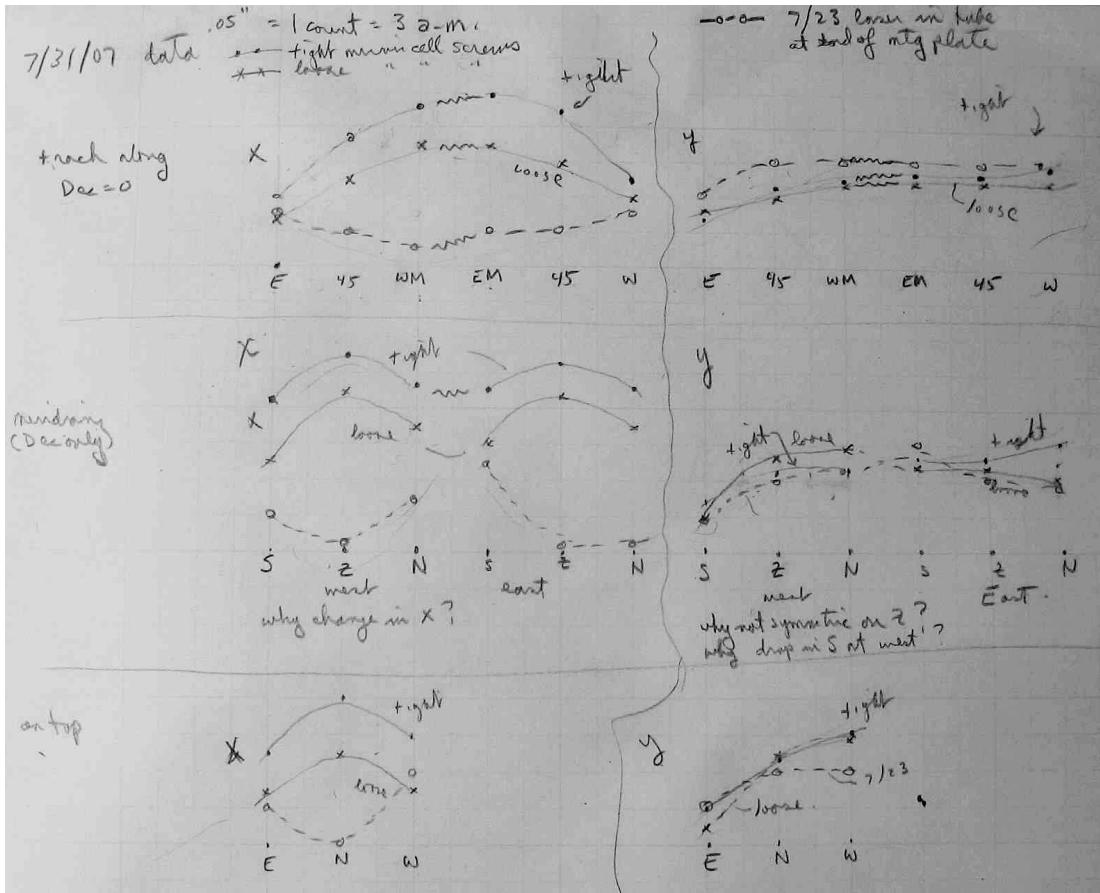 .05" = 1 count = 3 a-m.
7/31/07 data
tight mirror cell screws
loose " " "
7/23 laser in tube
at end of mtg plate
track along
Dec=0
X
tight
loose
E 45 WM EM 45 W
y
tight
loose
E 45 WM EM 45 W
meridian
(Dec only)
X
X
tight
loose
S Z N S Z N
west east
why change in X?
y
tight loose tight
loose
S Z N S Z N
west East.
why not symmetric on Z?
why drop in S at west?
on top
X
tight
loose
E N W
y
tight
7/23
loose
E N W